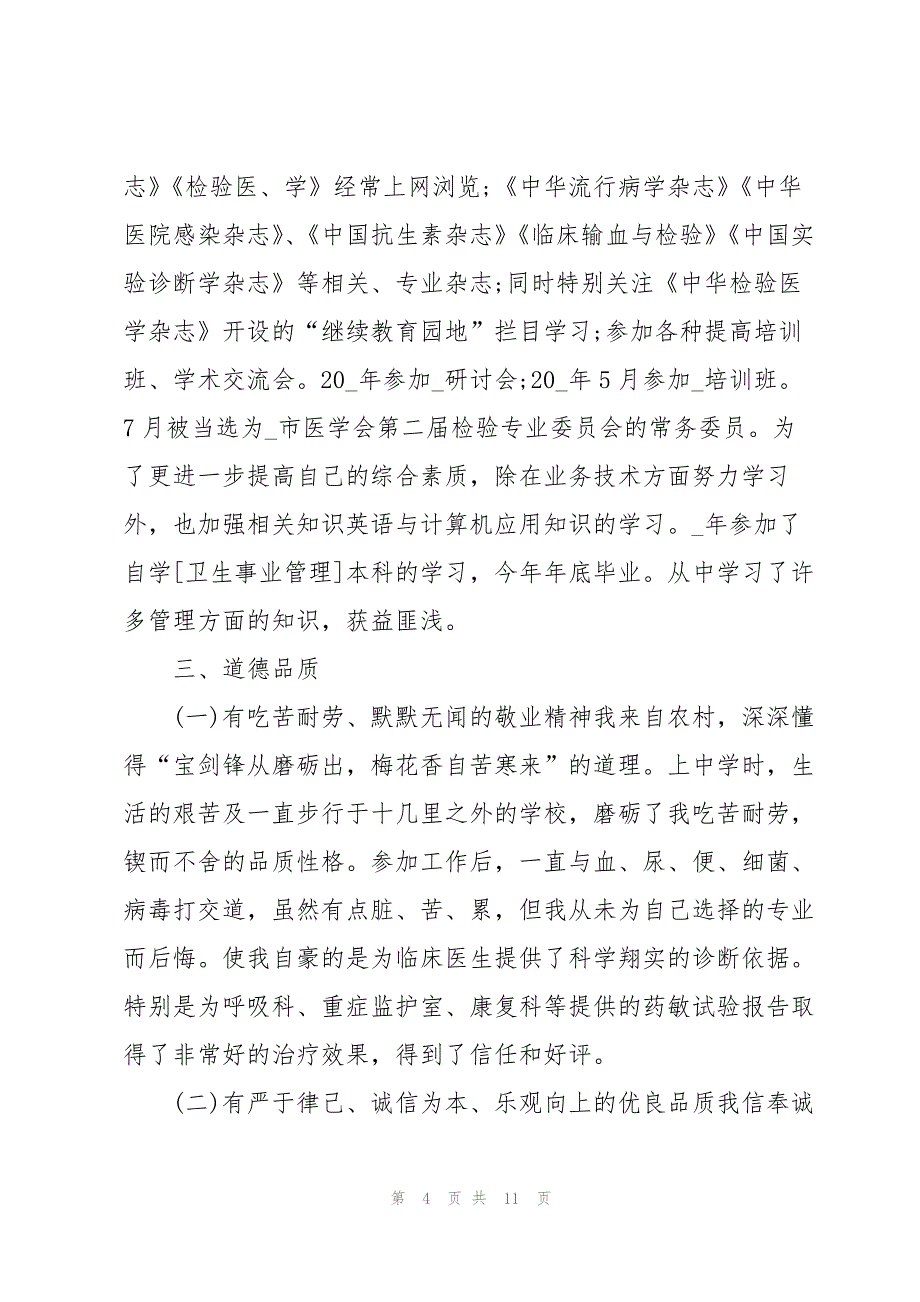 志》《检验医、学》经常上网浏览;《中华流行病学杂志》《中华
医院感染杂志》、《中国抗生素杂志》《临床输血与检验》《中国实
验诊断学杂志》等相关、专业杂志;同时特别关注《中华检验医
学杂志》开设的“继续教育园地”拦目学习;参加各种提高培训
班、学术交流会。20_年参加_研讨会;20_年 5 月参加_培训班。
7 月被当选为_市医学会第二届检验专业委员会的常务委员。为
了更进一步提高自己的综合素质，除在业务技术方面努力学习
外，也加强相关知识英语与计算机应用知识的学习。_年参加了
自学[卫生事业管理]本科的学习，今年年底毕业。从中学习了许
多管理方面的知识，获益匪浅。
三、道德品质
(一)有吃苦耐劳、默默无闻的敬业精神我来自农村，深深懂
得“宝剑锋从磨砺出，梅花香自苦寒来”的道理。上中学时，生
活的艰苦及一直步行于十几里之外的学校，磨砺了我吃苦耐劳，
锲而不舍的品质性格。参加工作后，一直与血、尿、便、细菌、
病毒打交道，虽然有点脏、苦、累，但我从未为自己选择的专业
而后悔。使我自豪的是为临床医生提供了科学翔实的诊断依据。
特别是为呼吸科、重症监护室、康复科等提供的药敏试验报告取
得了非常好的治疗效果，得到了信任和好评。
(二)有严于律己、诚信为本、乐观向上的优良品质我信奉诚
第 4 页 共 11 页